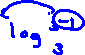 log₃ 3⁻¹